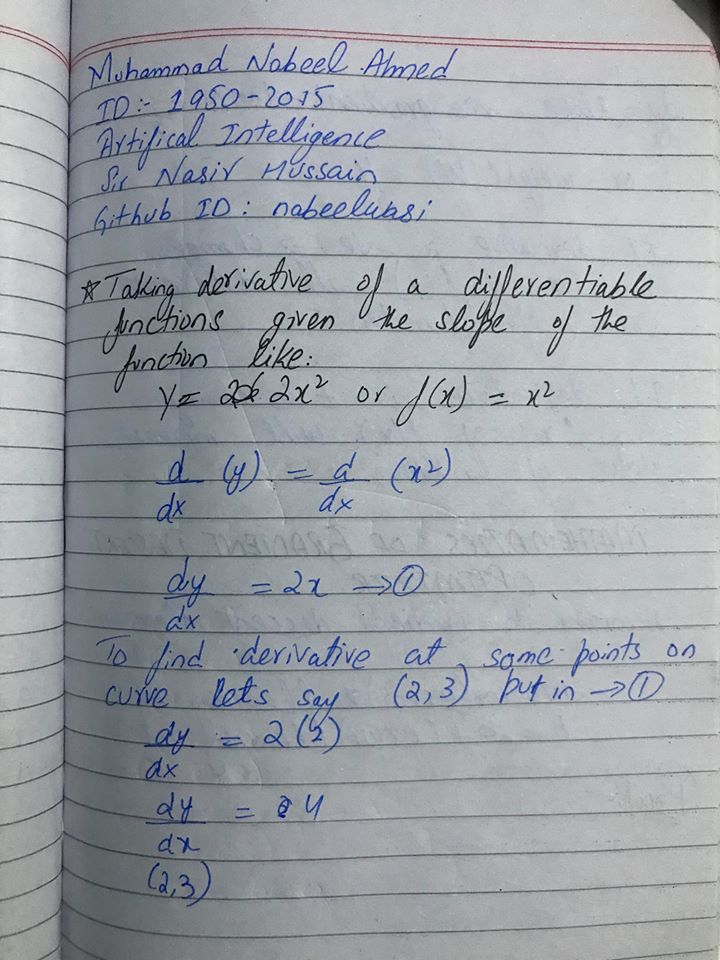 Muhammad Nabeel Ahmed
ID:- 1950-2015
Artifical Intelligence
Sir Nasir Hussain
Github ID: nabeelubsi
☆ Taking derivative of a differentiable
functions given the slope of the
function like:
y = 2x² or f(x) = x²
d/dx (y) = d/dx (x²)
dy/dx = 2x → ①
To find derivative at some points on
curve lets say (2,3) put in → ①
dy/dx = 2(2)
dy/dx = 4
(2,3)